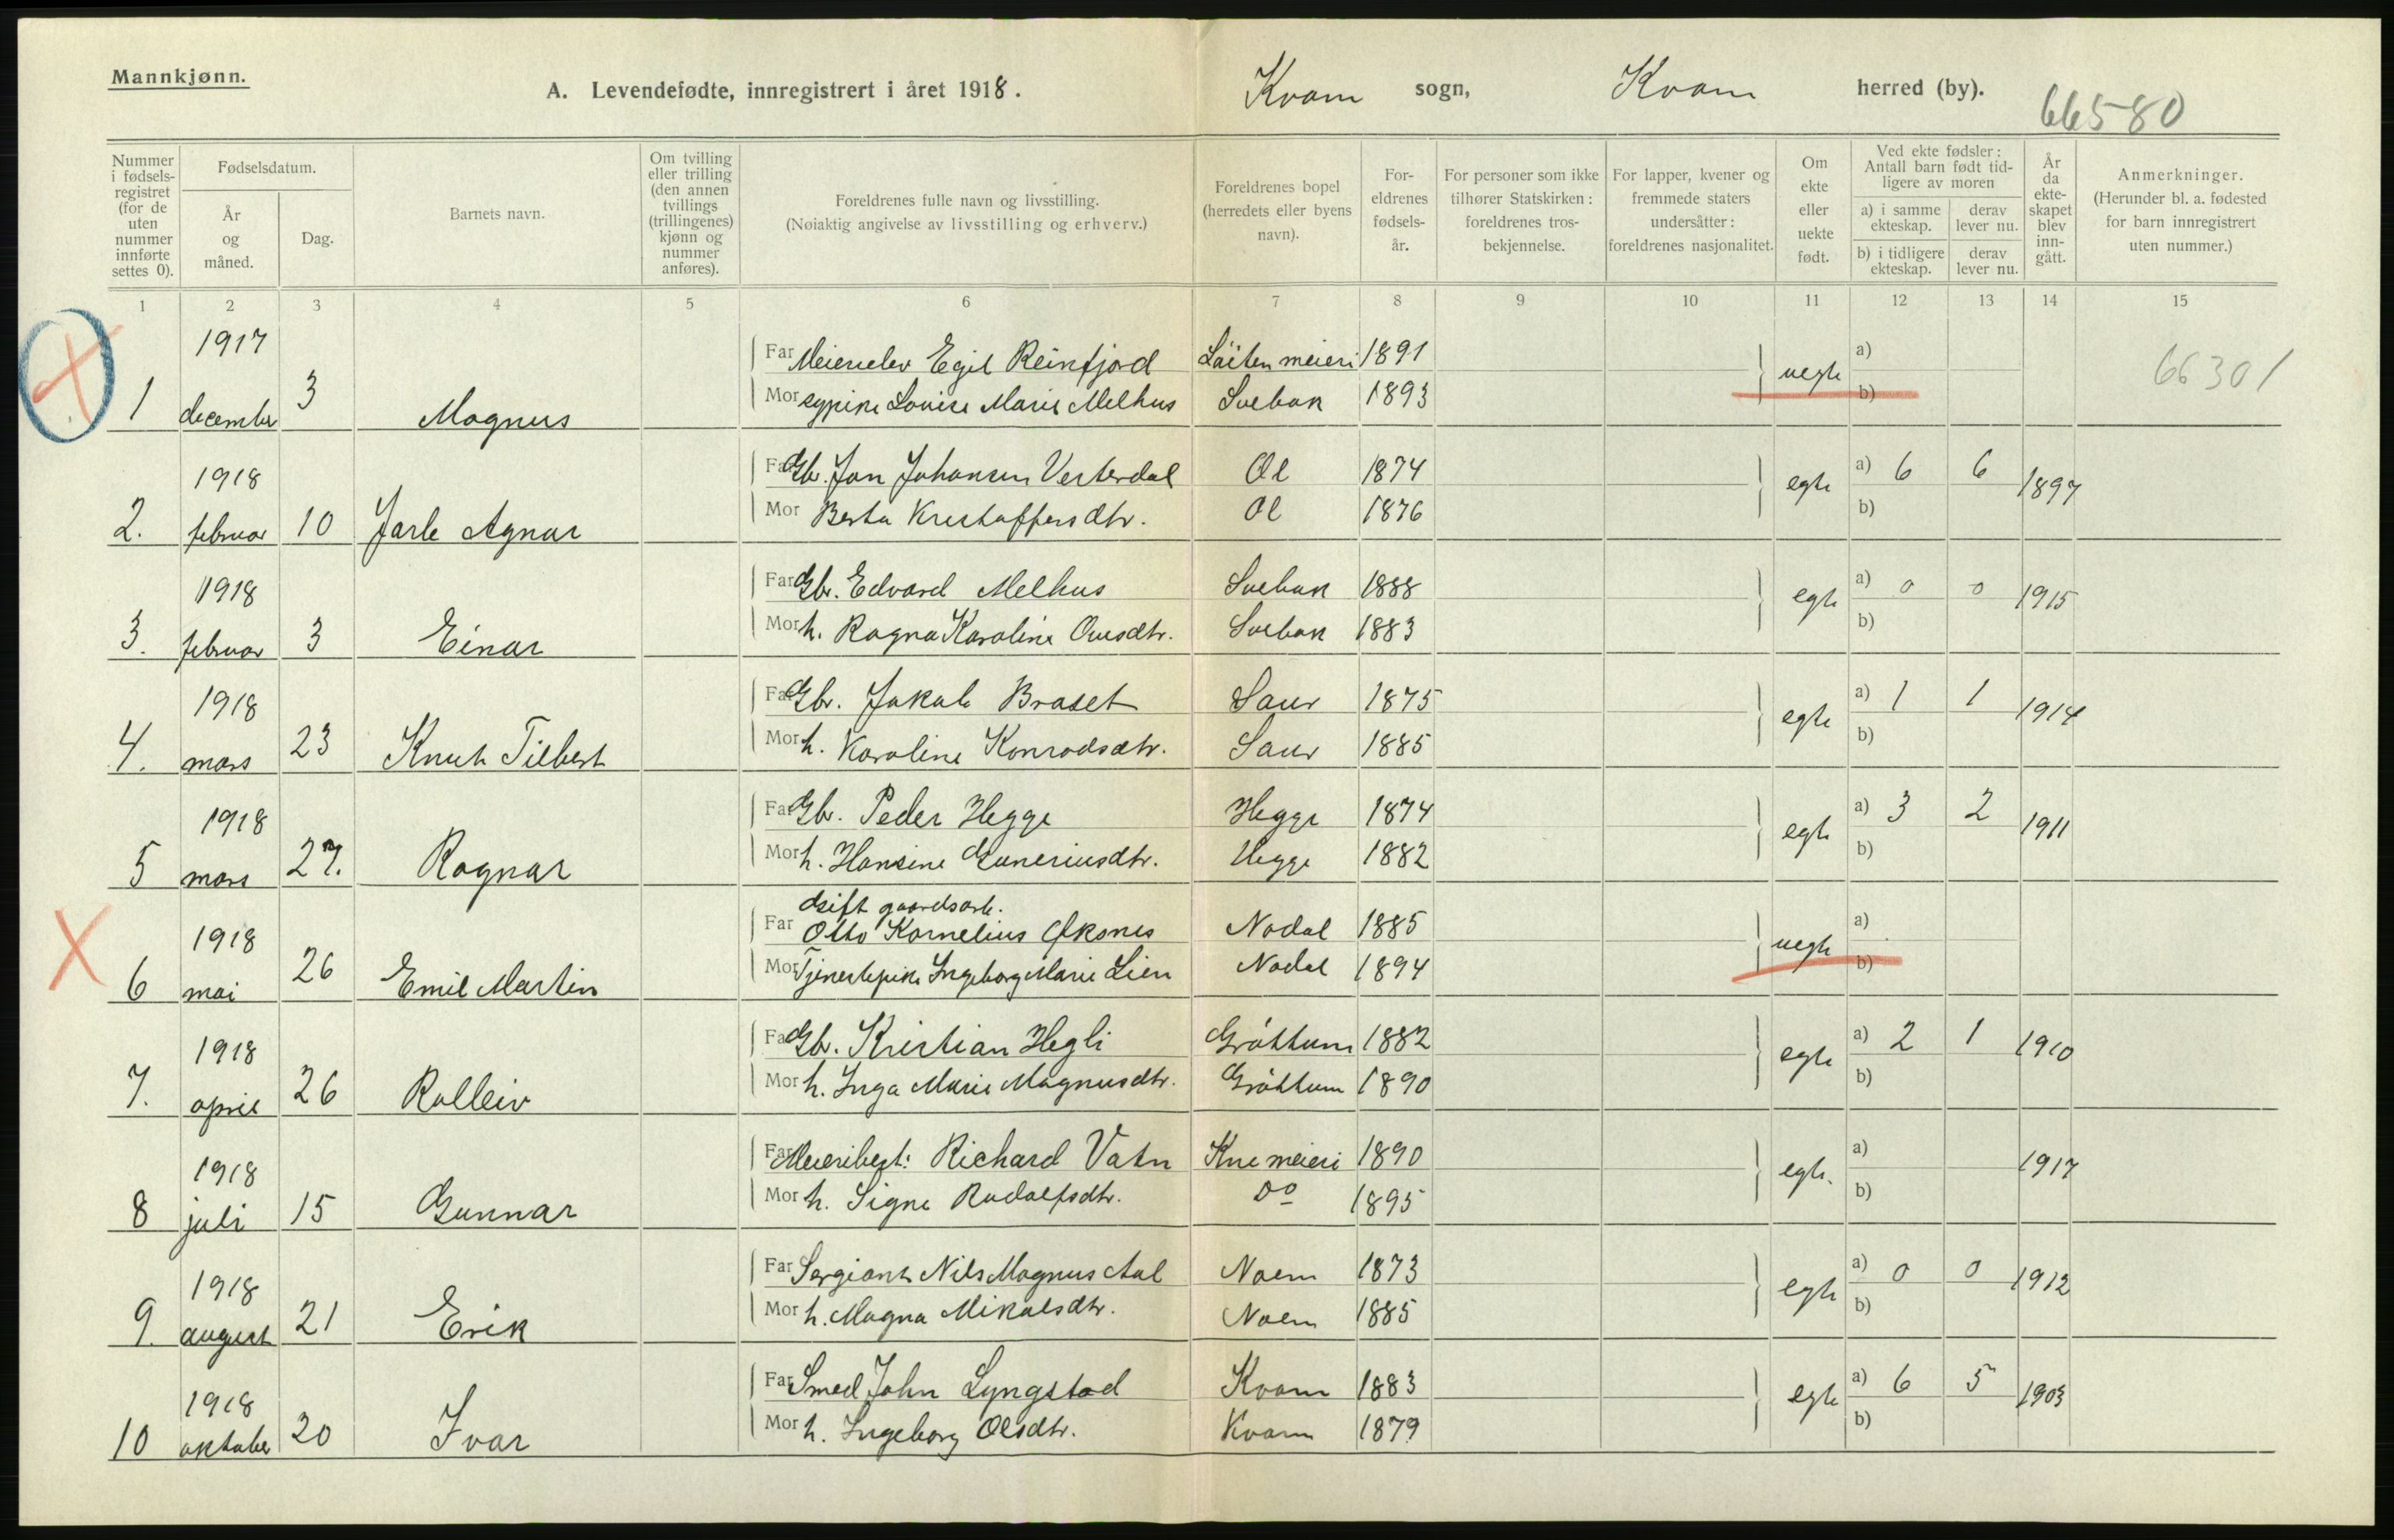 Mannkjønn.
A. Levendefødte, innregistrert i året 1918.
Kvam sogn, Kvam herred (by).
66580
Nummer i fødselsregistret (for de uten nummer innførte settes 0).
Fødselsdatum.
År og måned.
Dag.
Barnets navn.
Om tvilling eller trilling (den annen tvillings (trillingenes) kjønn og nummer anføres).
Foreldrenes fulle navn og livsstilling.
(Nøiaktig angivelse av livsstilling og erhverv.)
Foreldrenes bopel (herredets eller byens navn).
Foreldrenes fødselsår.
For personer som ikke tilhører Statskirken: foreldrenes trosbekjennelse.
For lapper, kvener og fremmede staters undersåtter: foreldrenes nasjonalitet.
Om ekte eller uekte født.
Ved ekte fødsler: Antall barn født tidligere av moren
a) i samme ekteskap.
derav lever nu.
b) i tidligere ekteskap.
derav lever nu.
År da ekteskapet blev inngått.
Anmerkninger.
(Herunder bl. a. fødested for barn innregistrert uten nummer.)
1 2 3 4 5 6 7 8 9 10 11 12 13 14 15
1917
Far Meierielev Egil Reinfjord Läiten meieri 1891 uegte a) 66301
1 december 3 Magnus
Mor sypike Lovise Marie Melhus Suebak 1893 b)
1918
Far Gbr. Jon Johansen Vesterdal Øl 1874 egte a) 6 6 1897
2. februar 10 Jarle Agnar
Mor Berta Kristoffersdtr. Øl 1876 b)
1918
Far Gbr. Edvard Melhus Suebak 1888 egte a) 0 0 1915
3. februar 3 Einar
Mor h. Ragna Karoline Ovesdtr. Suebak 1883 b)
1918
Far Gbr. Jakob Braset Saur 1875 egte a) 1 1 1914
4. mars 23 Knut Tilbert
Mor h. Karoline Konradsdtr. Saur 1885 b)
1918
Far Gbr. Peder Hegge Hegge 1874 egte a) 3 2 1911
5 mars 27. Ragnar
Mor h. Hansine Guneriusdtr. Hegge 1882 b)
dsift gaardsarb.
1918
Far Otto Kornelius Øksnes Nodal 1885 uegte a)
6 mai 26 Emil Martin
Mor Tjenestepike Ingeborg Marie Lien Nodal 1894 b)
1918
Far Gbr. Kristian Hegli Gröttum 1882 egte a) 2 1 1910
7. april 26 Rolleiv
Mor h. Inga Marie Magnusdtr. Gröttum 1890 b)
1918
Far Meieribest: Richard Vatn Kne meieri 1890 egte. a) 1917
8 juli 15 Gunnar
Mor h. Signe Rudolfsdtr. Do 1895 b)
1918
Far Sergiant Nils Magnus Aal Noem 1873 egte a) 0 0 1912
9. august 21 Erik
Mor h. Magna Mikalsdtr. Noem 1885 b)
1918
Far Smed John Lyngstad Kvam 1883 egte a) 6 5 1903
10 oktober 20 Ivar
Mor h. Ingeborg Olsdtr. Kvam 1879 b)